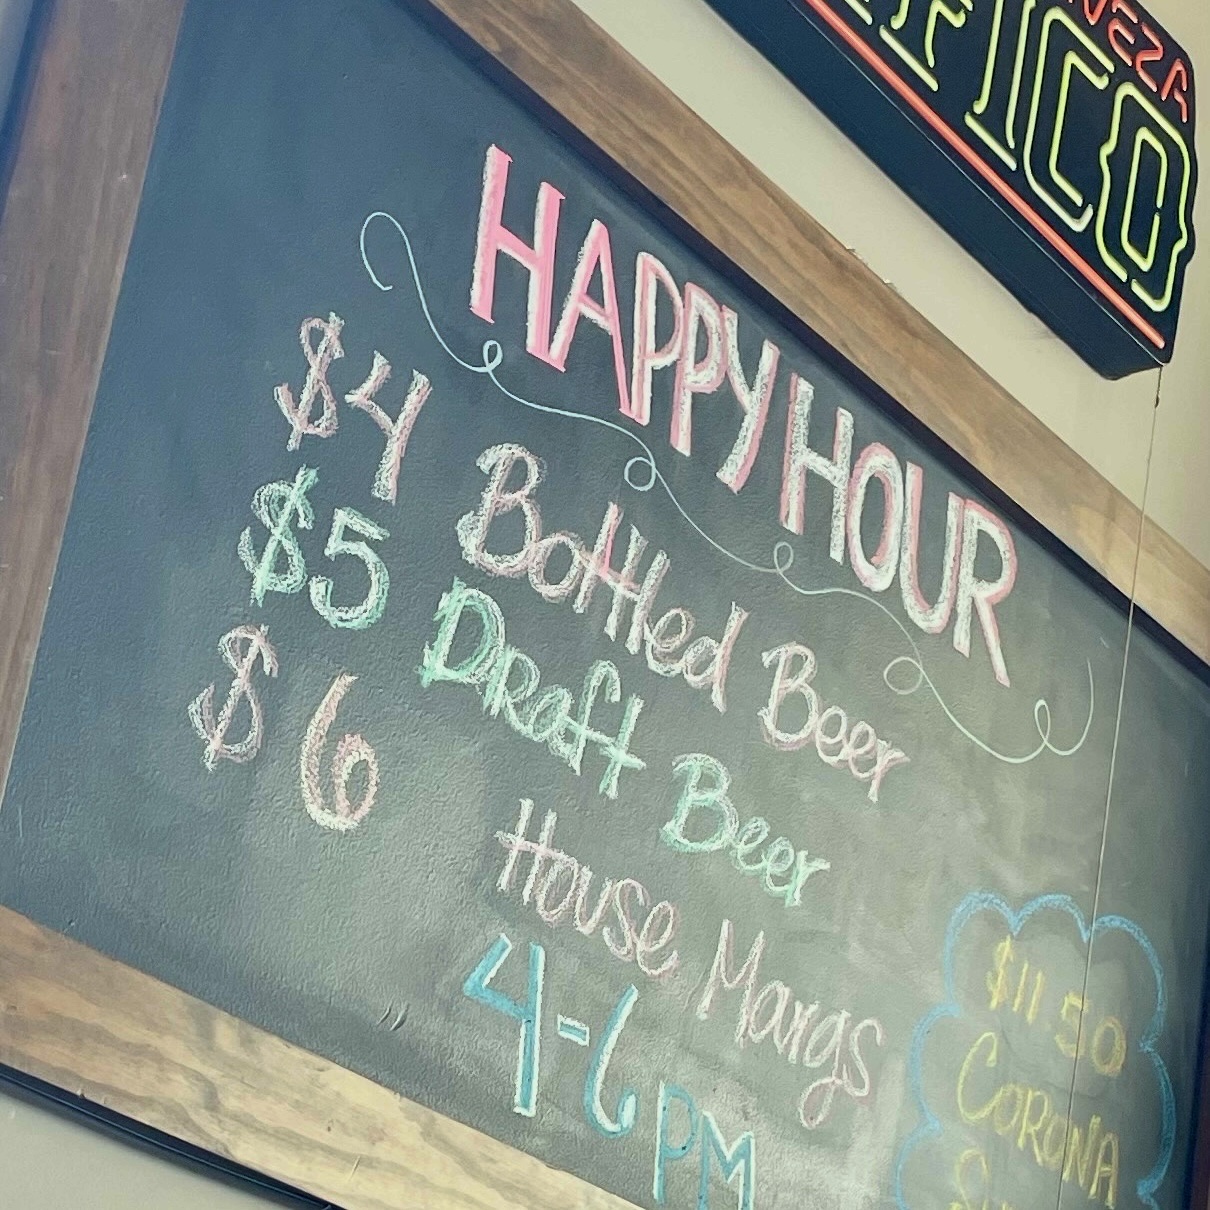 HAPPY HOUR
$4 Bottled Beer
$5 Draft Beer
$6 House Margs
4-6 PM
$11 50
CORONA